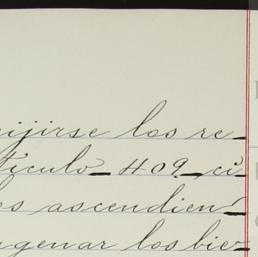 ijirse los re_
ticulo_ 409_ ci
os ascendien_
agenar los bie_